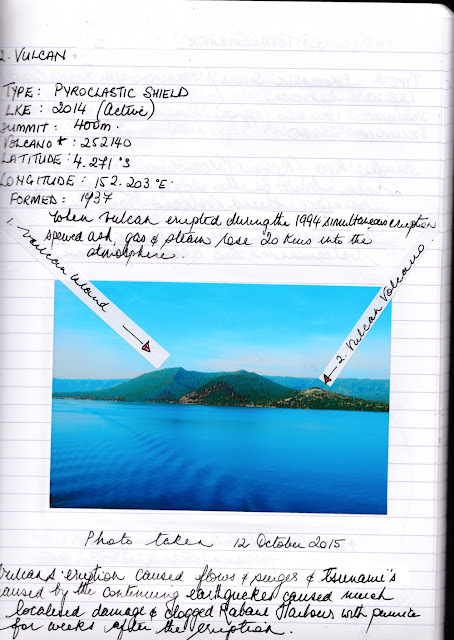 2. VULCAN
TYPE: PYROCLASTIC SHIELD
LKE: 2014 (Active)
SUMMIT: 400m.
VOLCANO #: 252140
LATITUDE: 4.271 °S
LONGITUDE: 152.203 °E.
FORMED: 1937
When Vulcan erupted during the 1994 simultaneous eruption
spewed ash, gas & steam rose 20 kms into the
atmosphere.
1. Vulcan Island
2. Vulcan Volcano.
Photo taken 12 October 2015
Vulcans eruption caused flows & surges & Tsunami's
caused by the continuing earthquakes caused much
localised damage & clogged Rabaul Harbour with pumice
for weeks after the eruption